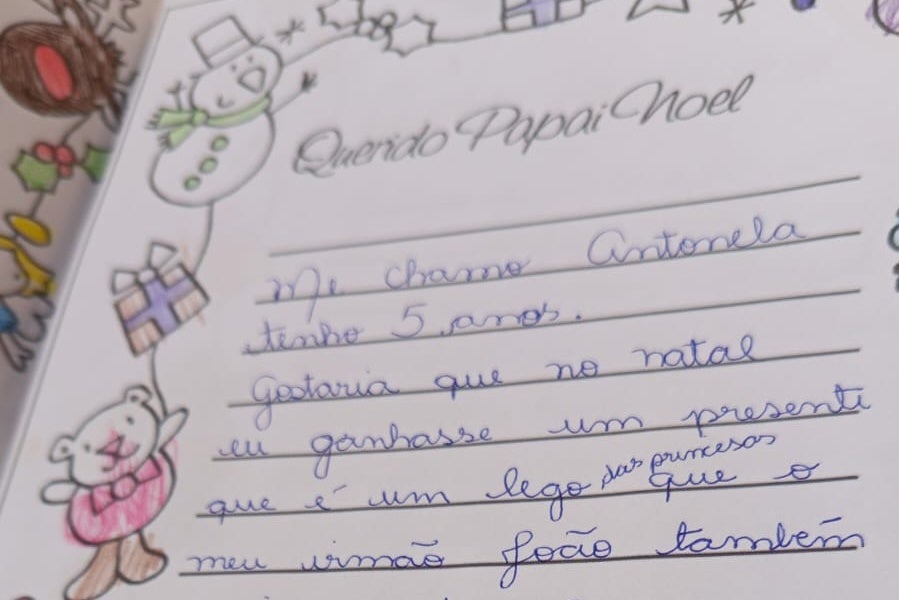 Querido Papai Noel
Me chamo Antonela
tenho 5 anos.
Gostaria que no natal
eu ganhasse um presente
que é um lego das princesas que o
meu irmão João tambem